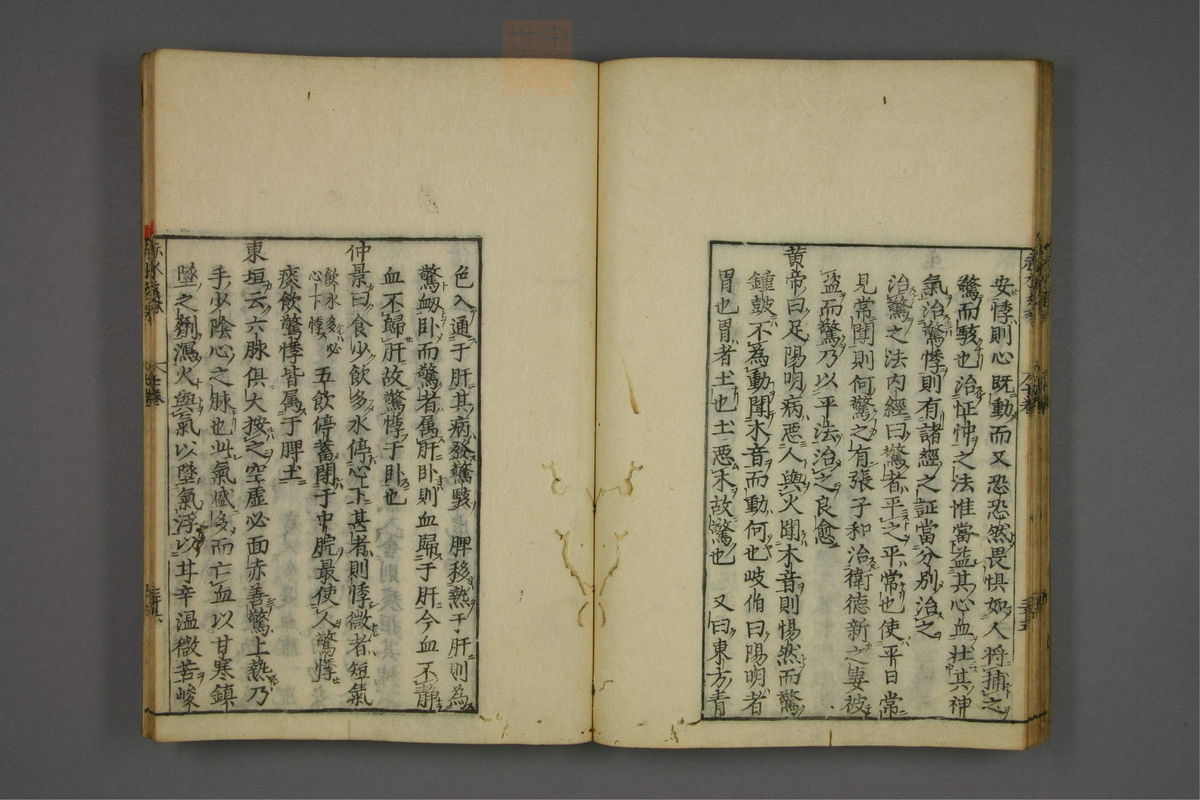 安悸則心既動而又恐恐然畏懼如人將捕之
驚而駭也治怔忡之法惟當益其心血壯其神
氣治驚悸則有諸經之証當分別治之
治驚之法內經曰驚者平之平常也使平日常
見常聞則何驚之有張子和治衛德新之妻被
盜而驚乃以平法治之良愈
黃帝曰足陽明病惡人與火聞木音則惕然而驚
鐘鼓不為動聞木音而動何也岐伯曰陽明者
胃也胃者土也土惡木故驚也　又曰東方青
色入通于肝其病發驚駭　脾移熱于肝則為
驚衂臥而驚者属肝臥則血歸于肝今血不靜
血不歸肝故驚悸于臥也
仲景曰食少飲多水停心下甚者則悸微者短氣
飲水多必
心下悸
五飲停蓄閉于中脘最使人驚悸
痰飲驚悸皆属于脾土
東垣云六脉俱大按之空虛必面赤善驚上熱乃
手少陰心之脉也此氣盛多而亡血以甘寒鎮
墜之劑瀉火與氣以墜氣浮以甘辛溫微苦峻